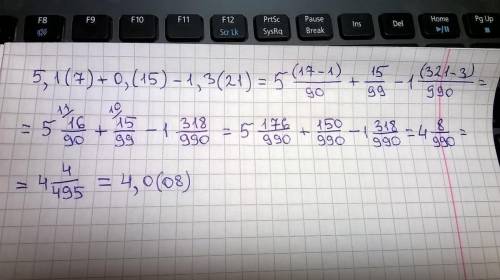 F8 F9 F10 F11 F12 PrtSc Pause Ins Del Home Pg Up
Scr Lk SysRq Break
5,1(7) + 0,(15) - 1,3(21) = 5 (17-1)/90 + 15/99 - 1 (321-3)/990 =
= 5 16/90 ^11/ + 15/99 ^10/ - 1 318/990 = 5 176/990 + 150/990 - 1 318/990 = 4 8/990 =
= 4 4/495 = 4,0(08)